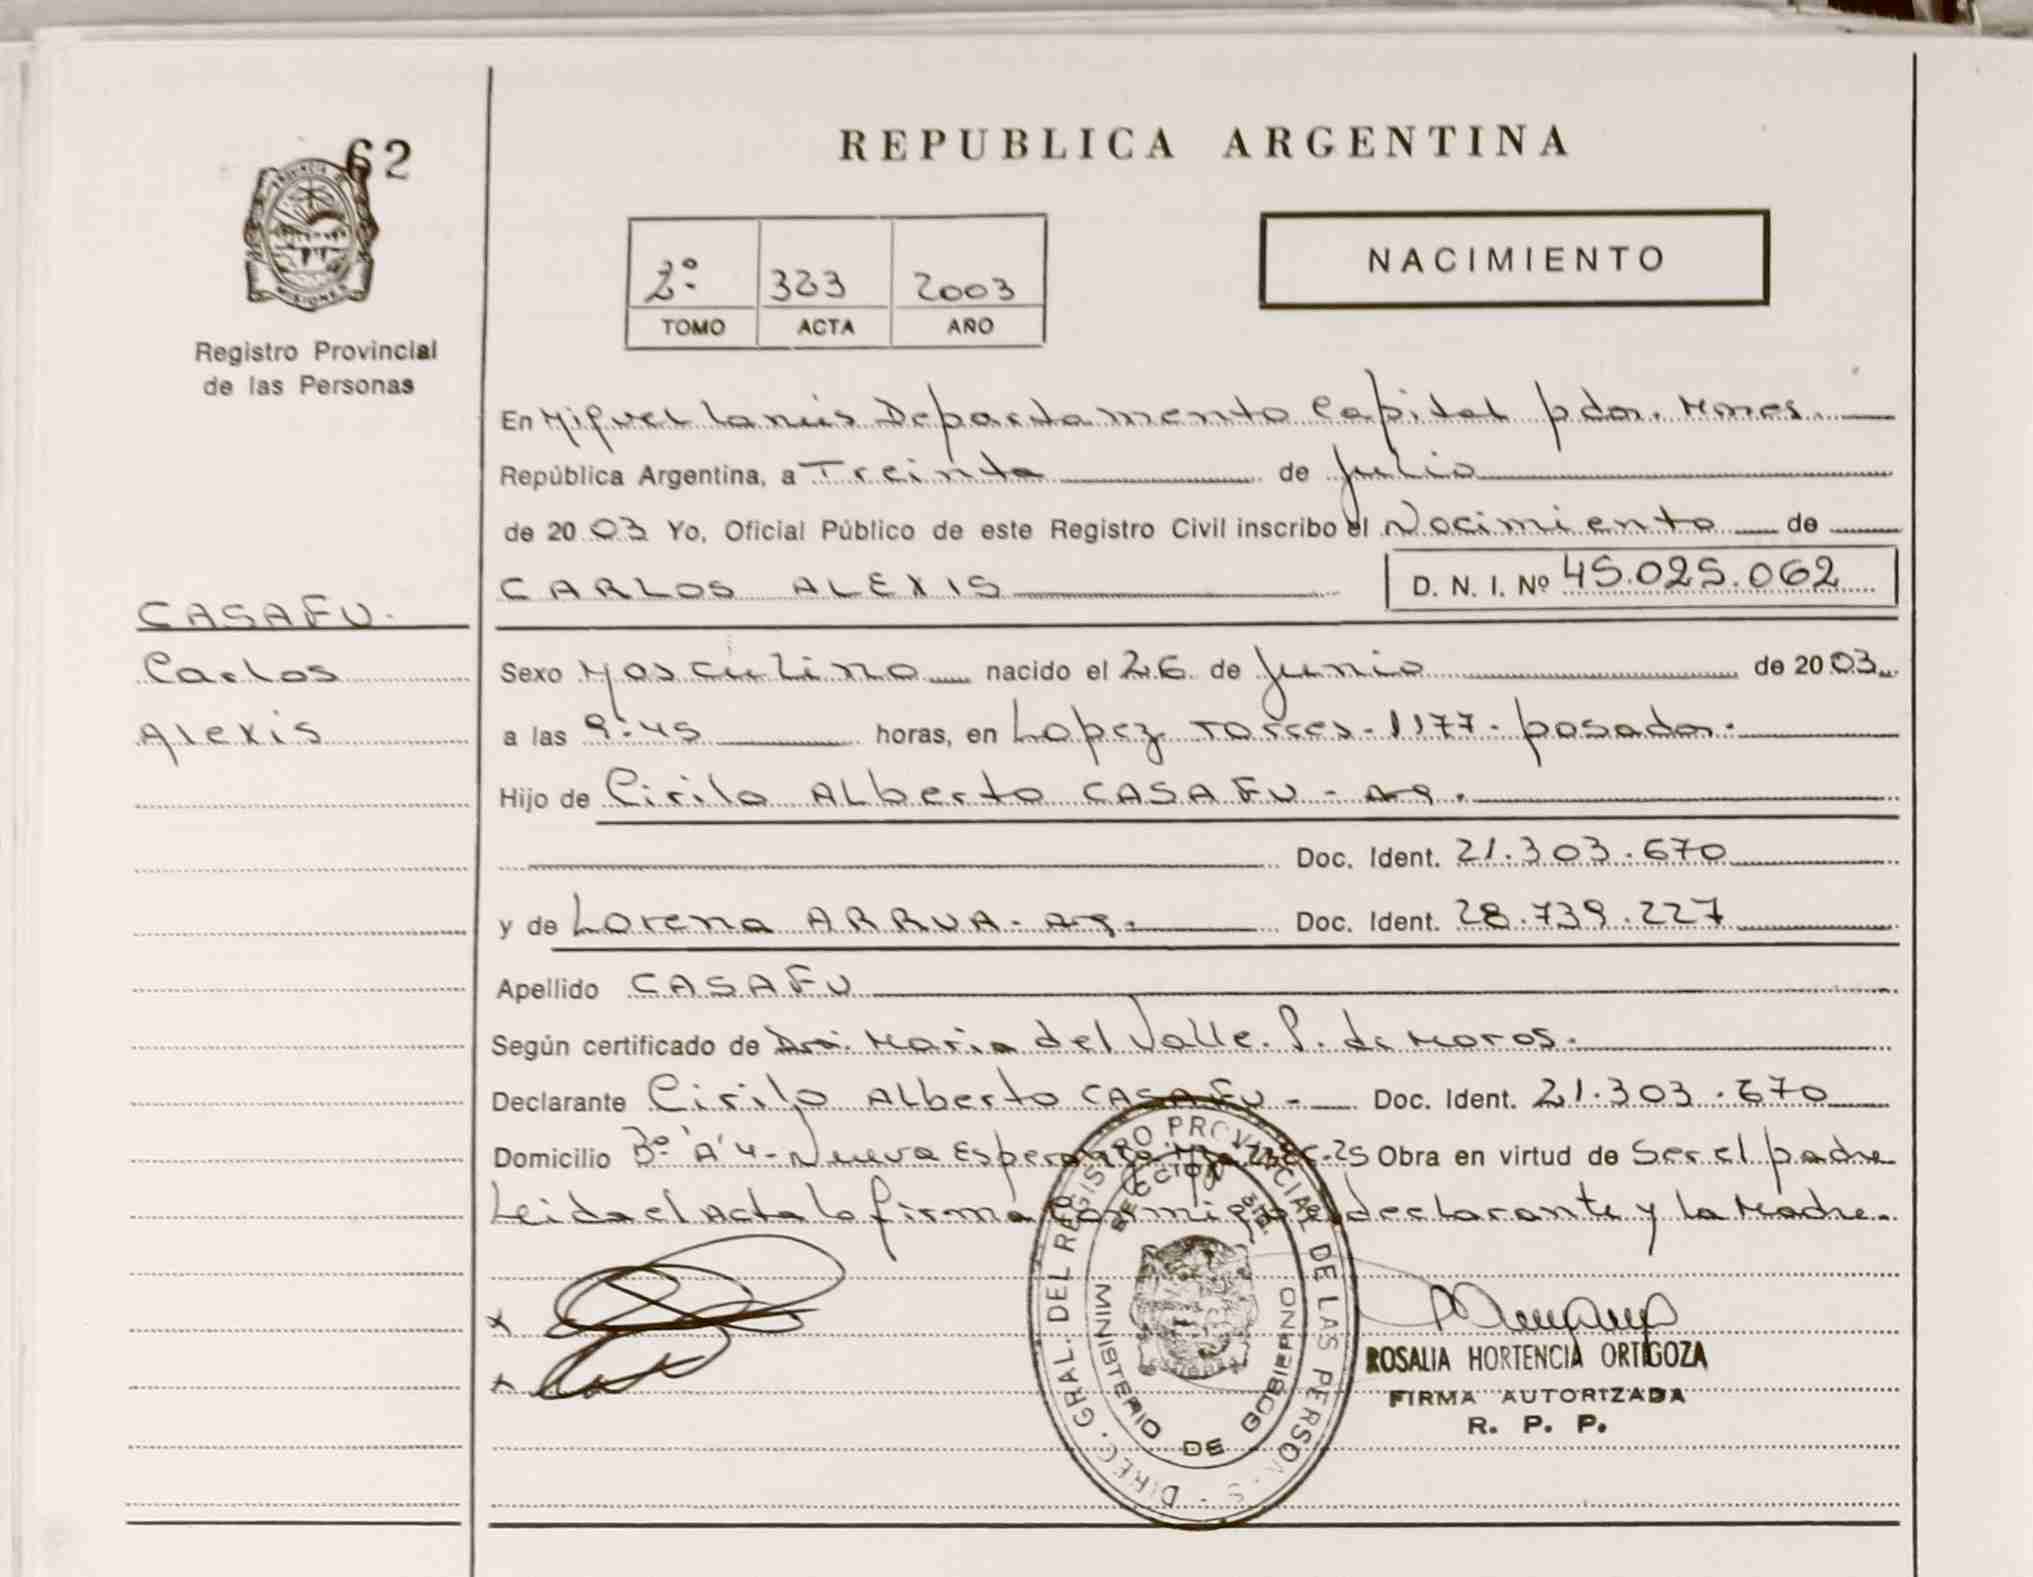 62
PROVINCIA DE
MISIONES
Registro Provincial
de las Personas
REPUBLICA ARGENTINA
2º 323 2003
TOMO ACTA AÑO
NACIMIENTO
En Miguel Lanús Departamento Capital pdas. Mnes.
República Argentina, a Treinta de Julio
de 2003 Yo, Oficial Público de este Registro Civil inscribo el Nacimiento de
CARLOS ALEXIS D. N. I. Nº 45.025.062
CASAFU.
Carlos
Alexis
Sexo Masculino nacido el 26 de Junio de 2003
a las 9:45 horas, en Lopez Torres - 1177 - posadas.
Hijo de Cirilo Alberto CASAFU - Arg.
Doc. Ident. 21.303.670
y de Lorena ARRUA - Arg. Doc. Ident. 28.739.227
Apellido CASAFU
Según certificado de Dra. Maria del Valle. P. de Moros.
Declarante Cirilo Alberto CASAFU - Doc. Ident. 21.303.670
Domicilio Bº "A" 4 - Nueva Esperanza - Mza. C-25 Obra en virtud de Ser el padre
Leida el Acta la firma conmigo el declarante y la Madre.
x
x
DIREC. GRAL. DEL REGISTRO PROVINCIAL DE LAS PERSONAS
MINISTERIO DE GOBIERNO
ROSALIA HORTENCIA ORTIGOZA
FIRMA AUTORIZADA
R. P. P.